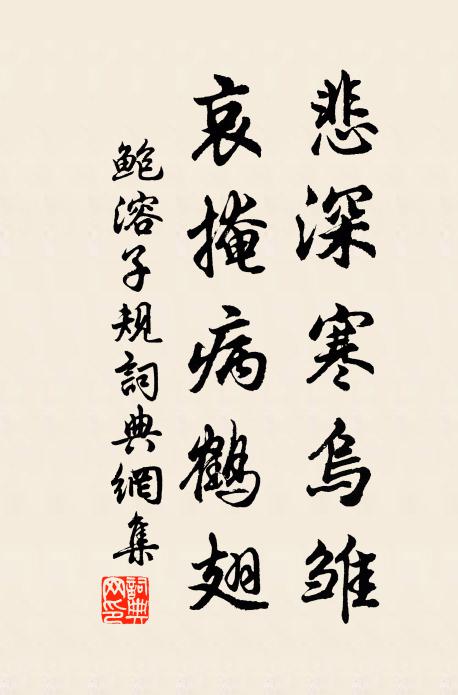 悲深寒烏雛
哀掩病鶴翅
鮑溶子規詞典網集
詞典網印